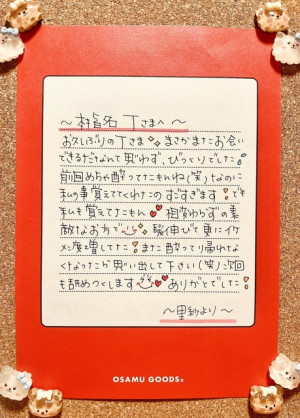 〜本指名 Tさまへ〜
お久しぶりのTさま まさかまたお会い
できるだなんて思わず、びっくりでした
前回めちゃ酔ってたもんね(笑)なのに
私の事覚えててくれたのすごすぎます!でも
私も覚えてたもん 相変わらずの素
敵なお方で 髪伸びて更にイケ
メン度増してた!また酔って帰れな
くなったら思い出して下さい(笑)次回
も舐めつくします ありがとでした!
〜里紗より〜
OSAMU GOODS®